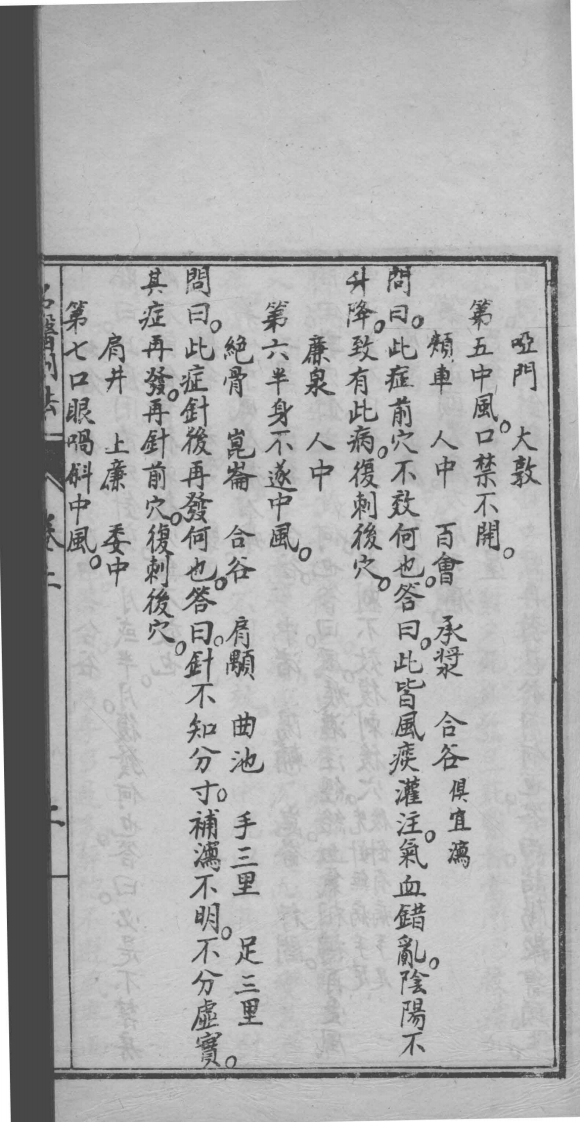 啞門　大敦
第五中風。口禁不開。
頰車　人中　百會　承漿　合谷俱宜瀉
問曰。此症前穴不效何也。答曰。此皆風痰灌注。氣血錯亂。陰陽不
升降。致有此病。復刺後穴。
廉泉　人中
第六半身不遂中風。
絶骨　崑崙　合谷　肩顒　曲池　手三里　足三里
問曰。此症針後再發何也。答曰。針不知分寸。補瀉不明。不分虛實。
其症再發。再針前穴。復刺後穴。
肩井　上廉　委中
第七口眼喎斜中風。